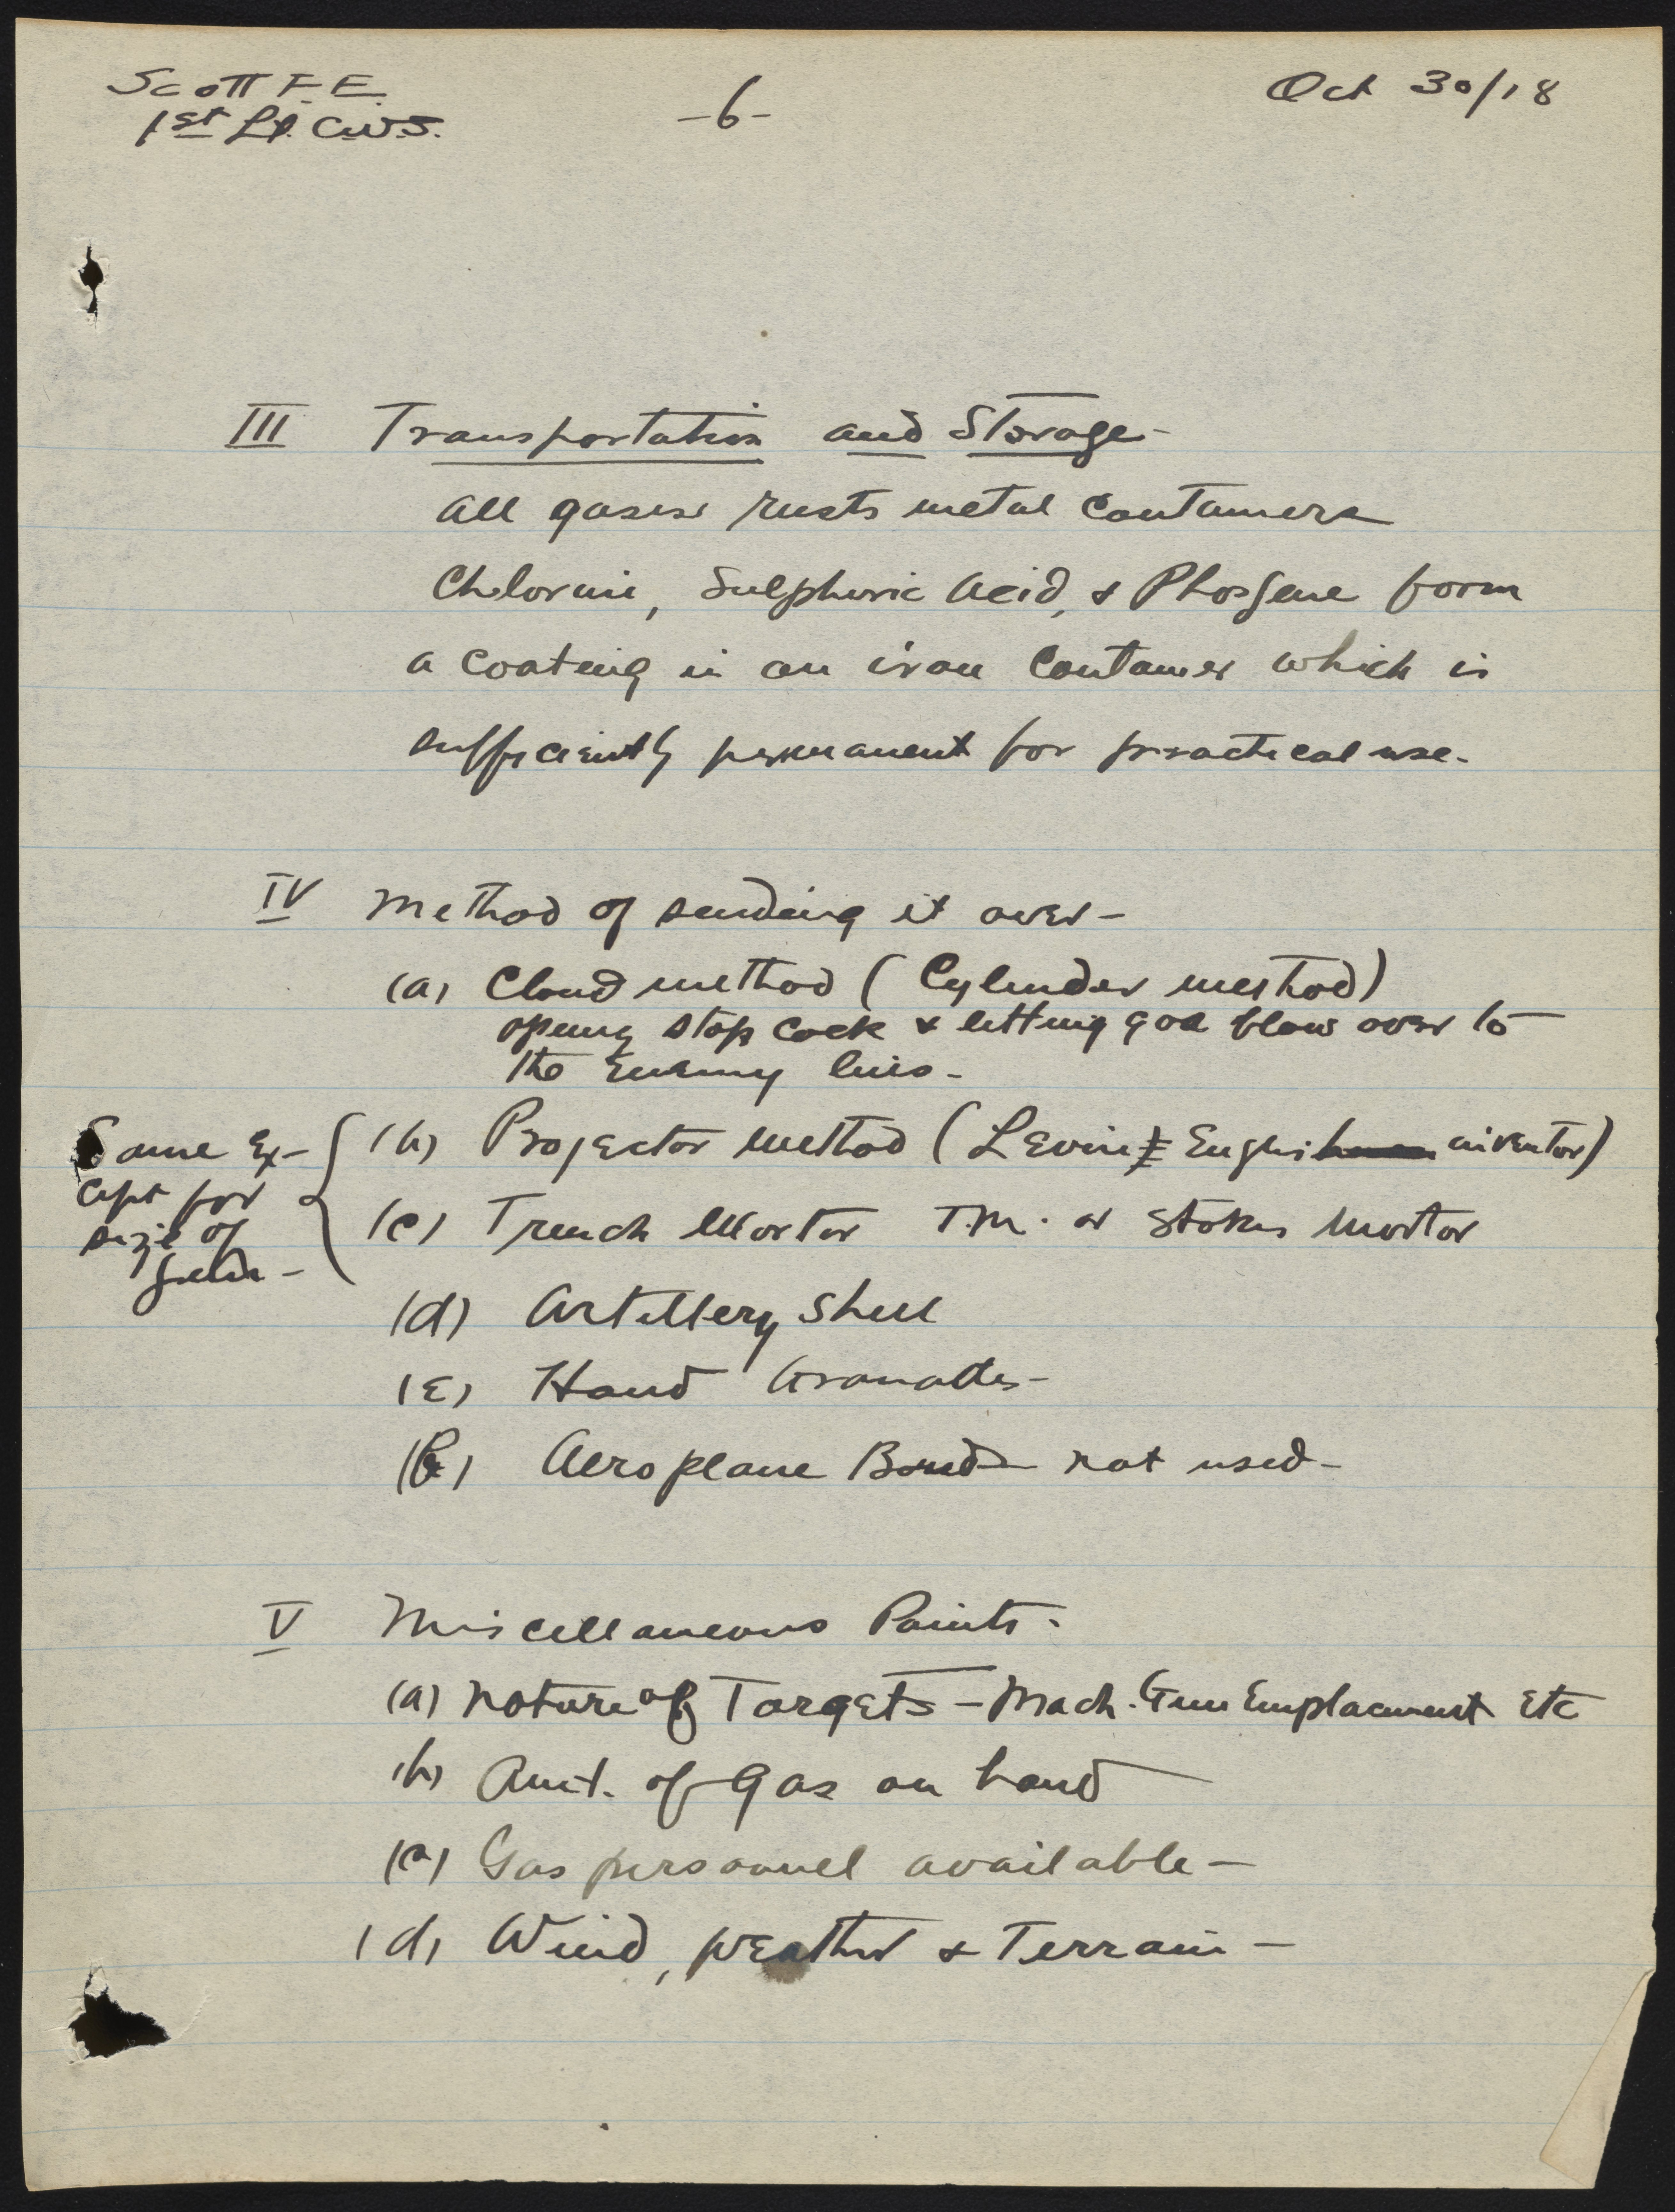 Scott F. E.
1st Lt. C.W.S.
-6-
Oct 30/18
III Transportation and Storage-
All gases rusts metal containers
Chlorine, Sulphuric Acid, & Phosgene form
a coating in an iron container which is
sufficiently permanent for practical use.
IV Method of sending it over-
(a) Cloud method (Cylinder method)
opening stop cock & letting gas blow over to
the Enemy lines-
(b) Projector method (Levins English inventor)
Same Ex-
cept for
size of
(c) Trench Mortar T.M. or Stokes Mortar
(d) Artillery Shell
(e) Hand Granades-
(f) Aeroplane Bomb- not used-
V Miscellaneous Points-
(a) Nature of Targets - Mach. Gun Emplacement Etc
(b) Amt. of Gas on hand
(c) Gas personnel available-
(d) Wind, weather & Terrain-